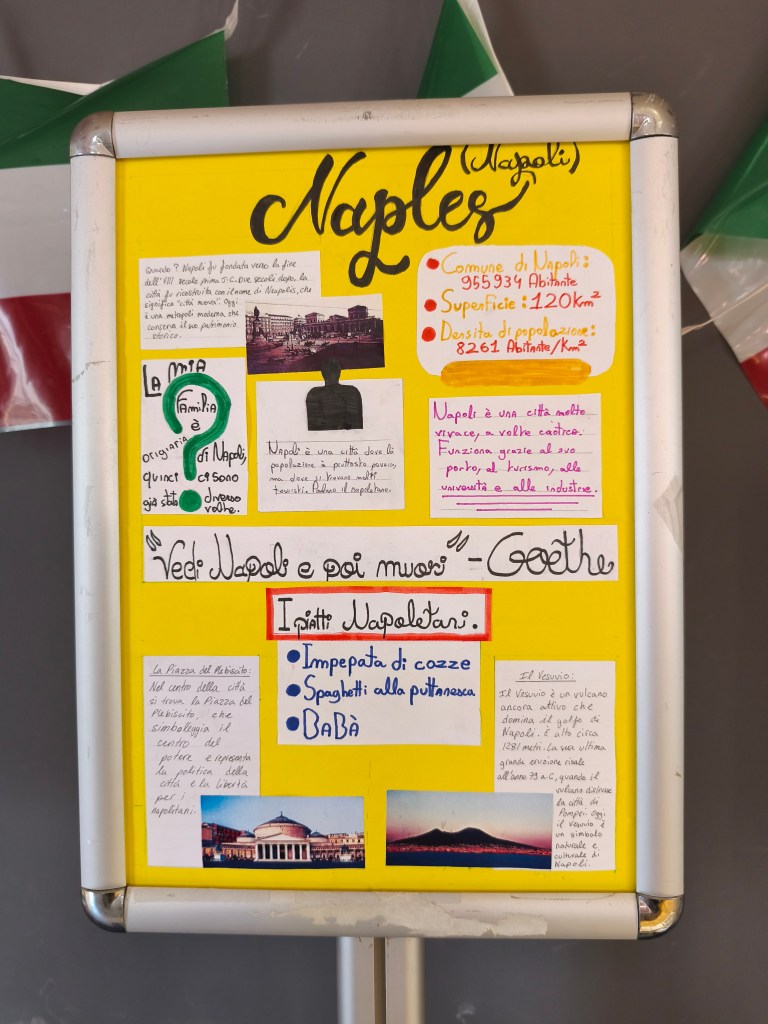 Naples
(Napoli)
Quando? Napoli fu fondata verso la fine
dell'VIII secolo prima J-C. Due secoli dopo, la
città fu ricostruita con il nome di Neapolis, che
significa "città nuova". Oggi
è una metropoli moderna, che
conserva il suo patrimonio
storico.
• Comune di Napoli:
955934 Abitante
• Superficie: 120Km²
• Densita di popolazione:
8261 Abitante/Km²
LA MIA
FAMILIA
è
origiaria
di Napoli,
quinci ci sono
già stato diverso
volte.
Napoli è una città dove la
popolazione è piuttosto povera,
ma dove si trovano molti
touristi. Parlano il napoletano.
Napoli è una città molto
vivace, a volte caotica.
Funziona grazie al suo
porto, al turismo, alle
università e alle industrie.
"Vedi Napoli e poi muori" - Goethe
I piatti Napoletani.
• Impepata di cozze
• Spaghetti alla puttanesca
• BABÀ
La Piazza del Plebiscito:
Nel centro della città
si trova la Piazza del
Plebiscito, che
simboleggia il
centro del
potere e represanta
la politica della
città e la libertà
per i
napoletani.
Il Vesuvio:
Il Vesuvio è un vulcano
ancora attivo che
domina il golfo di
Napoli. È alto circa
1281 metri. La sua ultima
grande eruzione risale
all'anno 79 a.C, quando il
vulcano distrusse
la città di
Pompei. Oggi
il vesuvio è
un simbolo
naturale e
culturale di
Napoli.